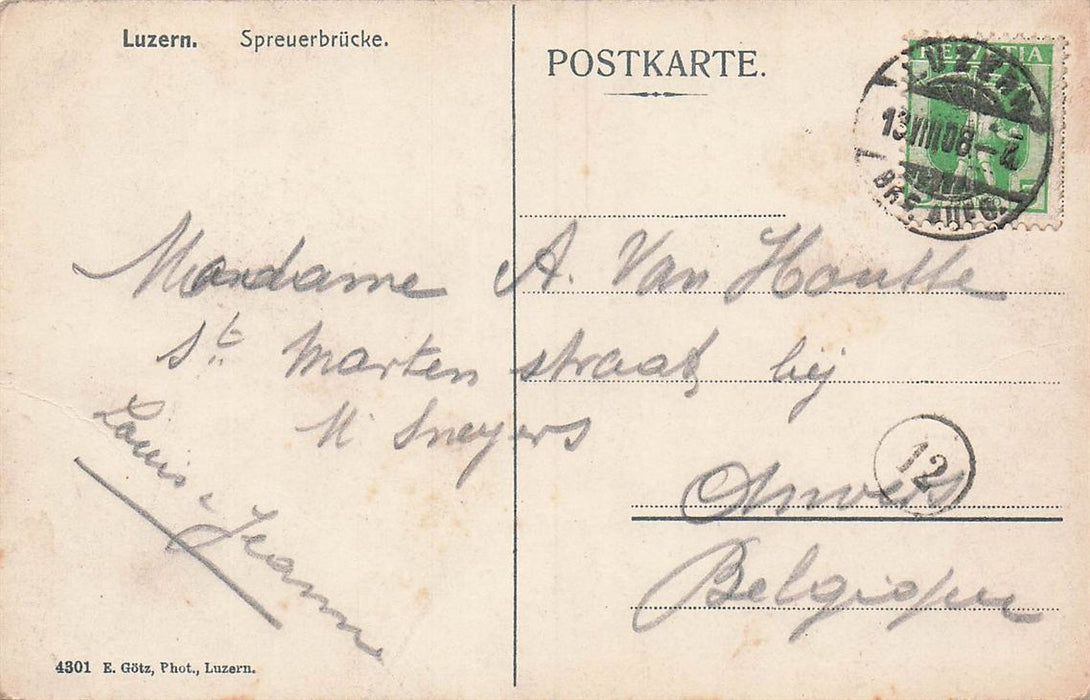 Luzern. Spreuerbrücke.
POSTKARTE.
HELVETIA
LUZERN
13 VIII 08
BRF. AUFG.
Madame A. Van Houtte
St Marten straat bij
Mr Sneyers
Anvers
12
Belgique
Louis & Jeanne
4301 E. Götz, Phot., Luzern.